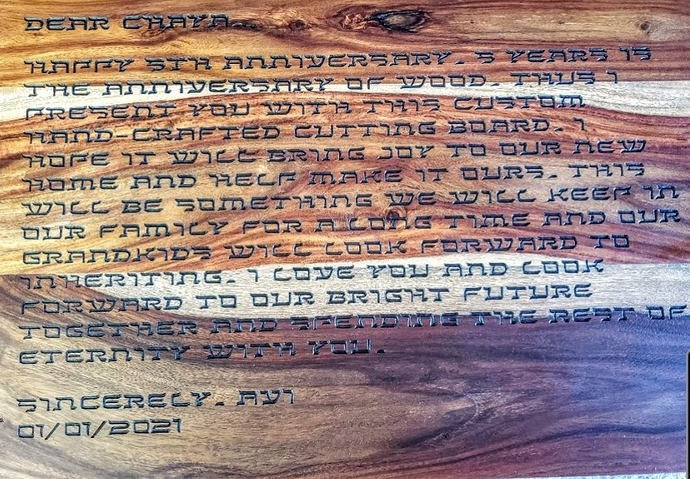 DEAR CHAYA,
HAPPY 5TH ANNIVERSARY. 5 YEARS IS
THE ANNIVERSARY OF WOOD. THUS I
PRESENT YOU WITH THIS CUSTOM
HAND-CRAFTED CUTTING BOARD. I
HOPE IT WILL BRING JOY TO OUR NEW
HOME AND HELP MAKE IT OURS. THIS
WILL BE SOMETHING WE WILL KEEP IN
OUR FAMILY FOR A LONG TIME AND OUR
GRANDKIDS WILL LOOK FORWARD TO
INHERITING. I LOVE YOU AND LOOK
FORWARD TO OUR BRIGHT FUTURE
TOGETHER AND SPENDING THE REST OF
ETERNITY WITH YOU.
SINCERELY, AVI
01/01/2021